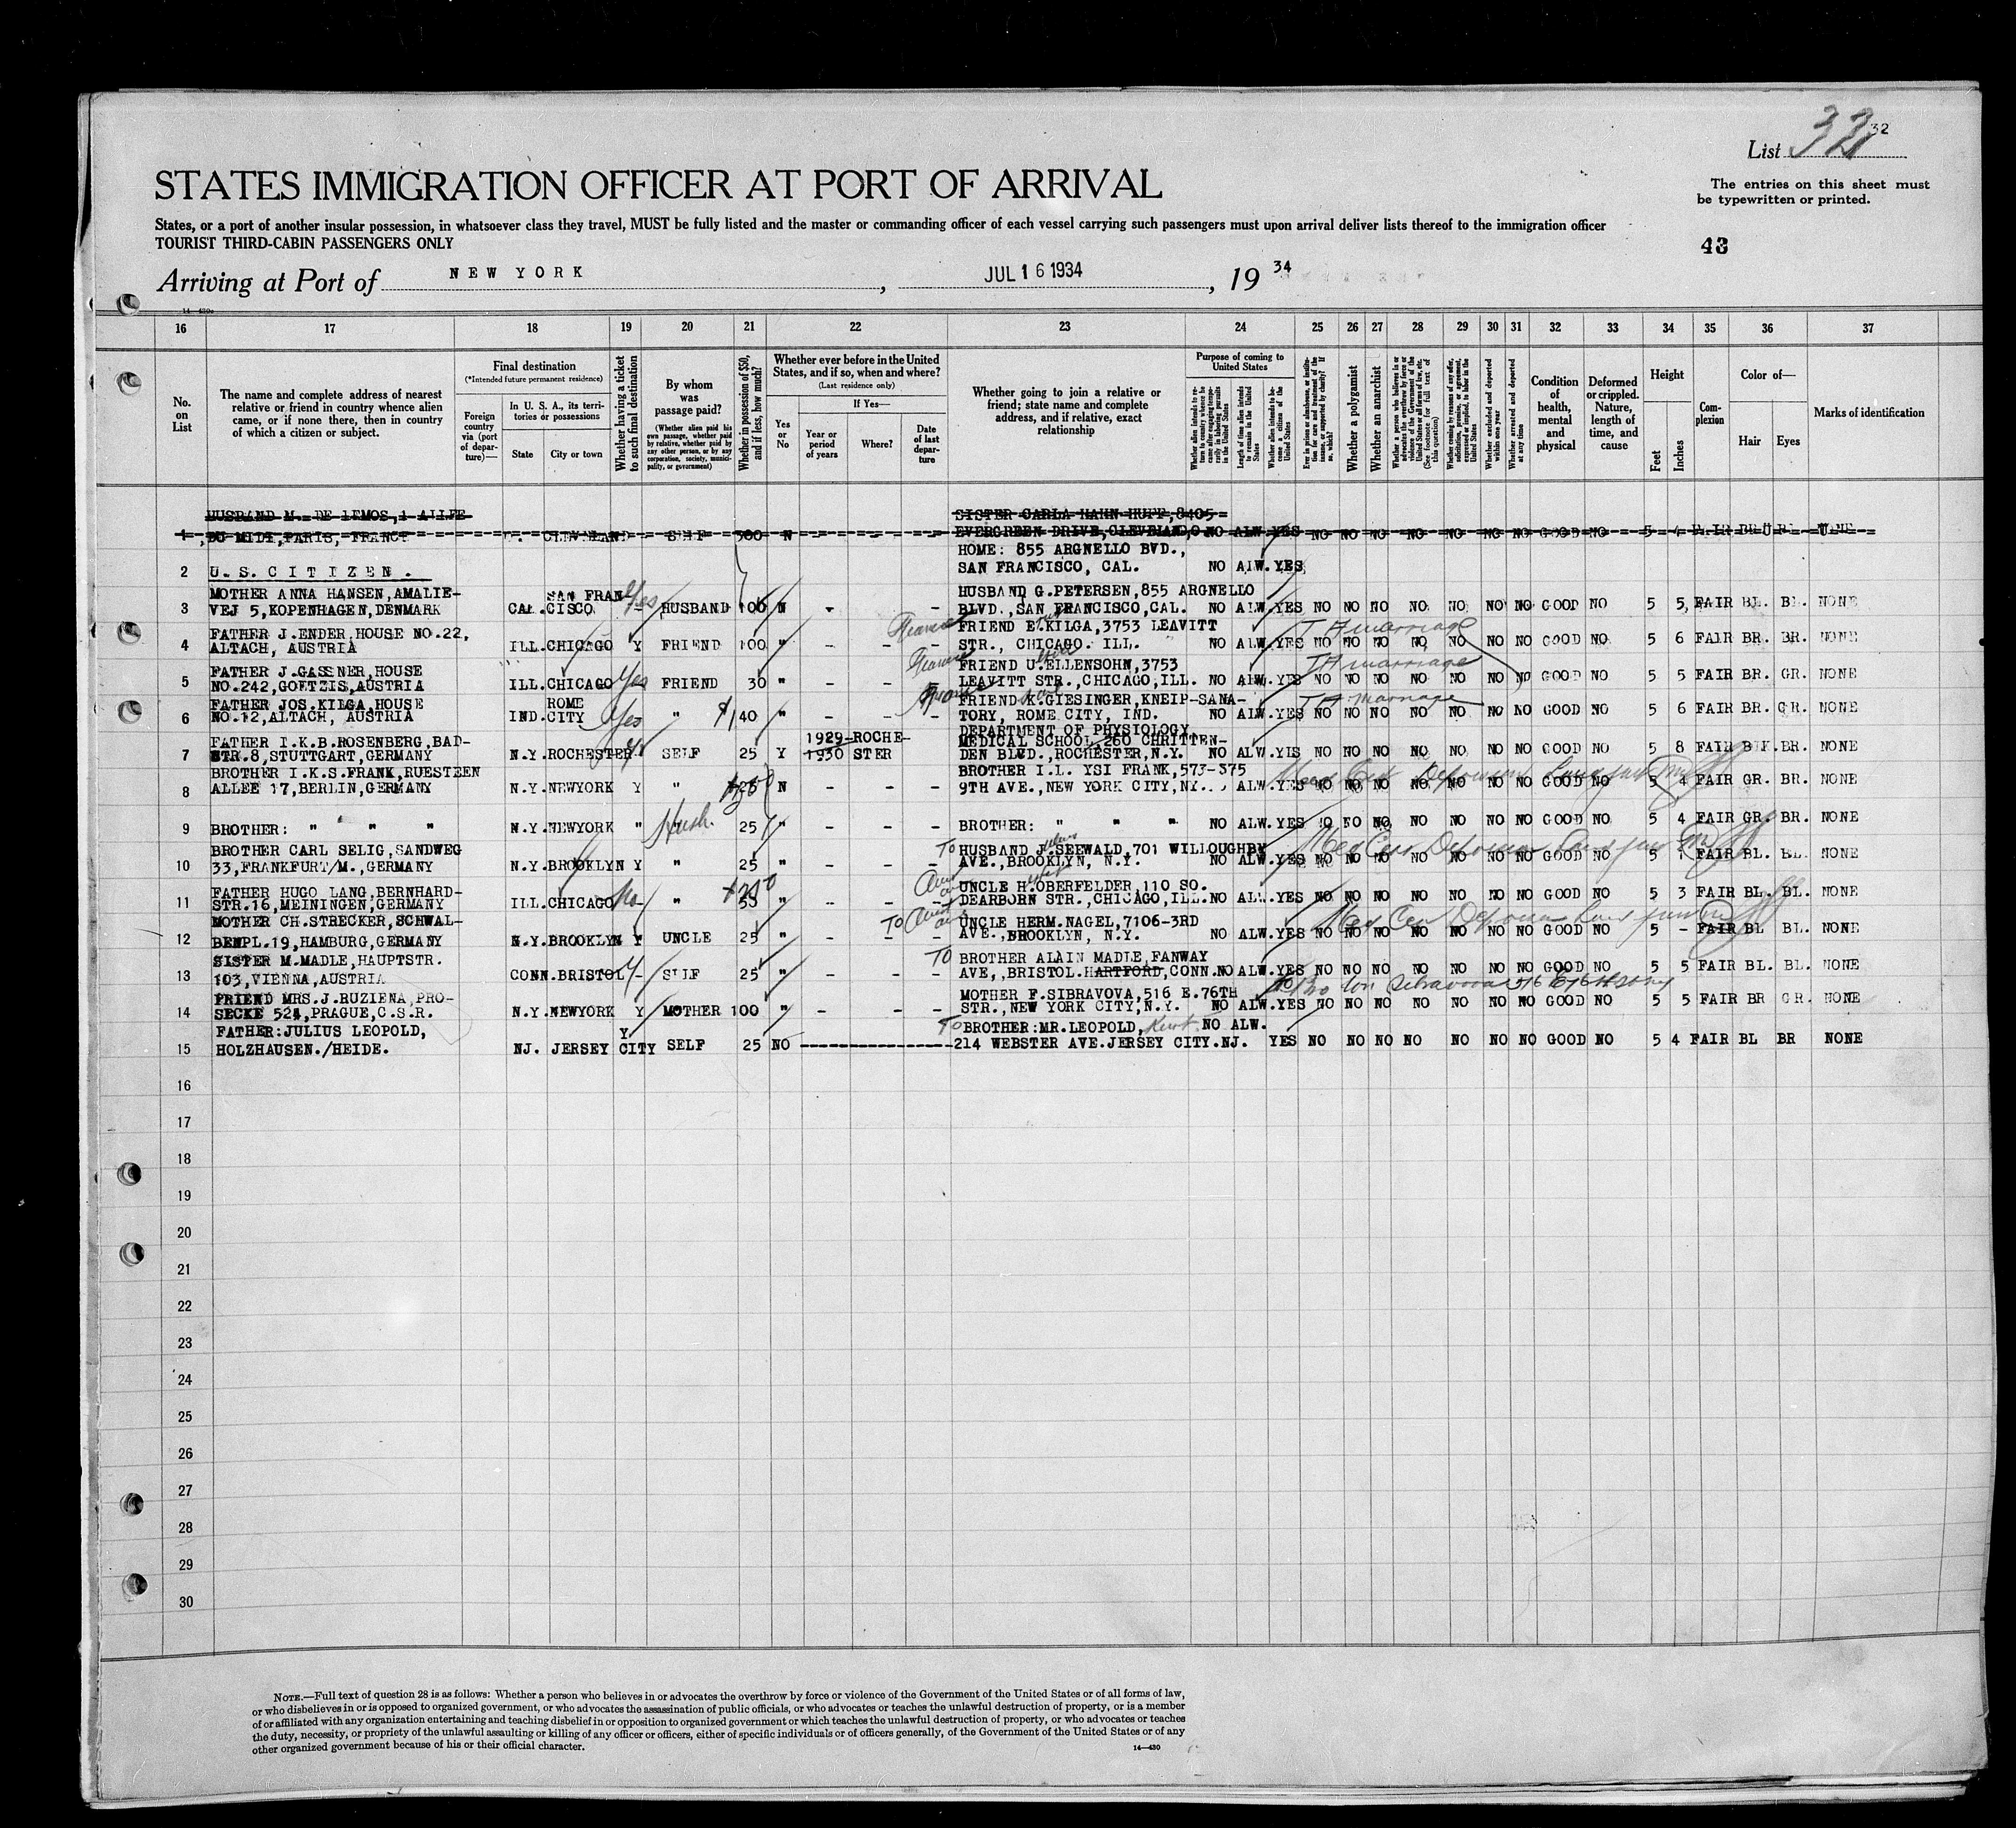 List 32 32
The entries on this sheet must
be typewritten or printed.
STATES IMMIGRATION OFFICER AT PORT OF ARRIVAL
States, or a port of another insular possession, in whatsoever class they travel, MUST be fully listed and the master or commanding officer of each vessel carrying such passengers must upon arrival deliver lists thereof to the immigration officer
TOURIST THIRD-CABIN PASSENGERS ONLY
43
Arriving at Port of NEW YORK, JUL 16 1934, 19 34
14—430
16 17 18 19 20 21 22 23 24 25 26 27 28 29 30 31 32 33 34 35 36 37
No. on List
The name and complete address of nearest relative or friend in country whence alien came, or if none there, then in country of which a citizen or subject.
Final destination
(*Intended future permanent residence)
Foreign country via (port of departure)—
In U. S. A., its territories or possessions
State
City or town
Whether having a ticket to such final destination
By whom was passage paid?
(Whether alien paid his own passage, whether paid by relative, whether paid by any other person, or by any corporation, society, municipality, or government)
Whether in possession of $50, and if less, how much?
Whether ever before in the United States, and if so, when and where?
(Last residence only)
Yes or No
If Yes—
Year or period of years
Where?
Date of last departure
Whether going to join a relative or friend; state name and complete address, and if relative, exact relationship
Purpose of coming to United States
Whether alien intends to return to country whence he came after engaging temporarily in laboring pursuits in the United States
Length of time alien intends to remain in the United States
Whether alien intends to become a citizen of the United States
Ever in prison or almshouse, or institution for care and treatment of the insane, or supported by charity? If so, which?
Whether a polygamist
Whether an anarchist
Whether a person who believes in or advocates the overthrow by force or violence of the Government of the United States or all forms of law, etc. (See footnote for full text of this question)
Whether coming by reasons of any offer, solicitation, promise, or agreement, expressed or implied, to labor in the United States
Whether excluded and deported within one year
Whether arrested and deported at any time
Condition of health, mental and physical
Deformed or crippled. Nature, length of time, and cause
Height
Feet
Inches
Complexion
Color of—
Hair
Eyes
Marks of identification
HUSBAND M. DE LEMOS, SISTER CARLA HAHN HUPP, 8405
1 DU MIDI, PARIS, FRANCE CLEVELAND SELF 300 N EVERGREEN DRIVE, CLEVELAND, O NO ALW. YES NO NO NO NO NO NO NO GOOD NO 5 4 FAIR
HOME: 855 ARGNELLO BVD.,
2 U. S. CITIZEN. SAN FRANCISCO, CAL. NO ALW. YES
MOTHER ANNA HANSEN, AMALIE- SAN FRAN- HUSBAND G. PETERSEN, 855 ARGNELLO
3 VEJ 5, KOPENHAGEN, DENMARK CAL. CISCO Yes HUSBAND 100 N - - BLVD., SAN FRANCISCO, CAL. NO ALW. YES NO NO NO NO NO NO NO GOOD NO 5 5 FAIR BL. BL. NONE
FATHER J. ENDER, HOUSE NO. 22, FRIEND E. KILGA, 3753 LEAVITT
4 ALTACH, AUSTRIA ILL. CHICAGO Y FRIEND 100 " - - - STR., CHICAGO. ILL. NO ALW. YES NO NO NO NO NO NO NO GOOD NO 5 6 FAIR BR. BR. NONE
T A marriage
FATHER J. GASSNER, HOUSE FRIEND U. ELLENSOHN, 3753
5 NO. 242, GOETZIS, AUSTRIA ILL. CHICAGO Yes FRIEND 30 " - - - LEAVITT STR., CHICAGO, ILL. NO ALW. YES NO NO NO NO NO NO NO GOOD NO 5 5 FAIR BR. GR. NONE
T A marriage
FATHER JOS. KILGA, HOUSE ROME FRIEND K. GIESINGER, KNEIP-SANA-
6 NO. 12, ALTACH, AUSTRIA IND. CITY Yes " 40 " - - - TORY, ROME CITY, IND. NO ALW. YES NO NO NO NO NO NO NO GOOD NO 5 6 FAIR BR. GR. NONE
T A marriage
DEPARTMENT OF PHYSIOLOGY
FATHER I.K.B. ROSENBERG, BAD- 1929- ROCHE- MEDICAL SCHOOL, 260 CHRITTEN-
7 STR. 8, STUTTGART, GERMANY N.Y. ROCHESTER SELF 25 Y 1930 STER DEN BLVD., ROCHESTER, N.Y. NO ALW. YES NO NO NO NO NO NO NO GOOD NO 5 8 FAIR BR. NONE
BROTHER I.K.S. FRANK, RUESTEEN BROTHER I.L. YSI FRANK, 573-575
8 ALLEE 17, BERLIN, GERMANY N.Y. NEWYORK Y " 25 N - - - 9TH AVE., NEW YORK CITY, NY. ALW. YES NO NO NO NO NO NO NO GOOD NO 5 4 FAIR GR. BR. NONE
9 BROTHER: " " " N.Y. NEWYORK " Hush. 25 " - - - BROTHER: " " " NO ALW. YES NO NO NO NO NO NO NO GOOD NO 5 4 FAIR GR. BR. NONE
BROTHER CARL SELIG, SANDWEG To HUSBAND J. SEEWALD, 701 WILLOUGHBY
10 33, FRANKFURT/M., GERMANY N.Y. BROOKLYN Y " 25 " - - - AVE., BROOKLYN, N.Y. NO ALW. YES NO NO NO NO NO NO NO GOOD NO 5 1 FAIR BL. BL. NONE
FATHER HUGO LANG, BERNHARD- UNCLE H. OBERFELDER, 110 SO.
11 STR. 16, MEININGEN, GERMANY ILL. CHICAGO No " " - - - DEARBORN STR., CHICAGO, ILL. NO ALW. YES NO NO NO NO NO NO NO GOOD NO 5 3 FAIR BL. BL. NONE
MOTHER CH. STRECKER, SCHWAL- To UNCLE HERM. NAGEL, 7106-3RD
12 BENPL. 19, HAMBURG, GERMANY N.Y. BROOKLYN Y UNCLE 25 " - - - AVE., BROOKLYN, N.Y. NO ALW. YES NO NO NO NO NO NO NO GOOD NO 5 - FAIR BL BL. NONE
SISTER M. MADLE, HAUPTSTR. To BROTHER ALAIN MADLE, FANWAY
13 103, VIENNA, AUSTRIA CONN. BRISTOL Y SELF 25 " - - - AVE., BRISTOL. HARTFORD, CONN. NO ALW. YES NO NO NO NO NO NO NO GOOD NO 5 5 FAIR BL. BL. NONE
FRIEND MRS. J. RUZIENA, PRO- MOTHER F. SIBRAVOVA, 516 E. 76TH
14 SECKE 524, PRAGUE, C.S.R. N.Y. NEWYORK Y MOTHER 100 " - - - STR., NEW YORK CITY, N.Y. NO ALW. YES NO NO NO NO NO NO NO GOOD NO 5 5 FAIR BR GR. NONE
FATHER: JULIUS LEOPOLD, Y To BROTHER: MR. LEOPOLD, Kurt. NO ALW.
15 HOLZHAUSEN./HEIDE. NJ. JERSEY CITY SELF 25 NO ---------------- 214 WEBSTER AVE. JERSEY CITY. NJ. YES NO NO NO NO NO NO NO GOOD NO 5 4 FAIR BL BR NONE
16
17
18
19
20
21
22
23
24
25
26
27
28
29
30
NOTE.—Full text of question 28 is as follows: Whether a person who believes in or advocates the overthrow by force or violence of the Government of the United States or of all forms of law,
or who disbelieves in or is opposed to organized government, or who advocates the assassination of public officials, or who advocates or teaches the unlawful destruction of property, or is a member
of or affiliated with any organization entertaining and teaching disbelief in or opposition to organized government or which teaches the unlawful destruction of property, or who advocates or teaches
the duty, necessity, or propriety of the unlawful assaulting or killing of any officer or officers, either of specific individuals or of officers generally, of the Government of the United States or of any
other organized government because of his or their official character.
14—430